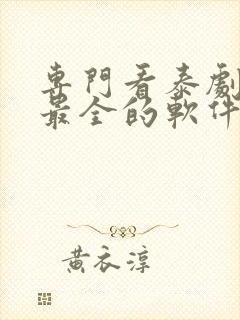 專門看泰劇
最全的軟件
黃衣淳